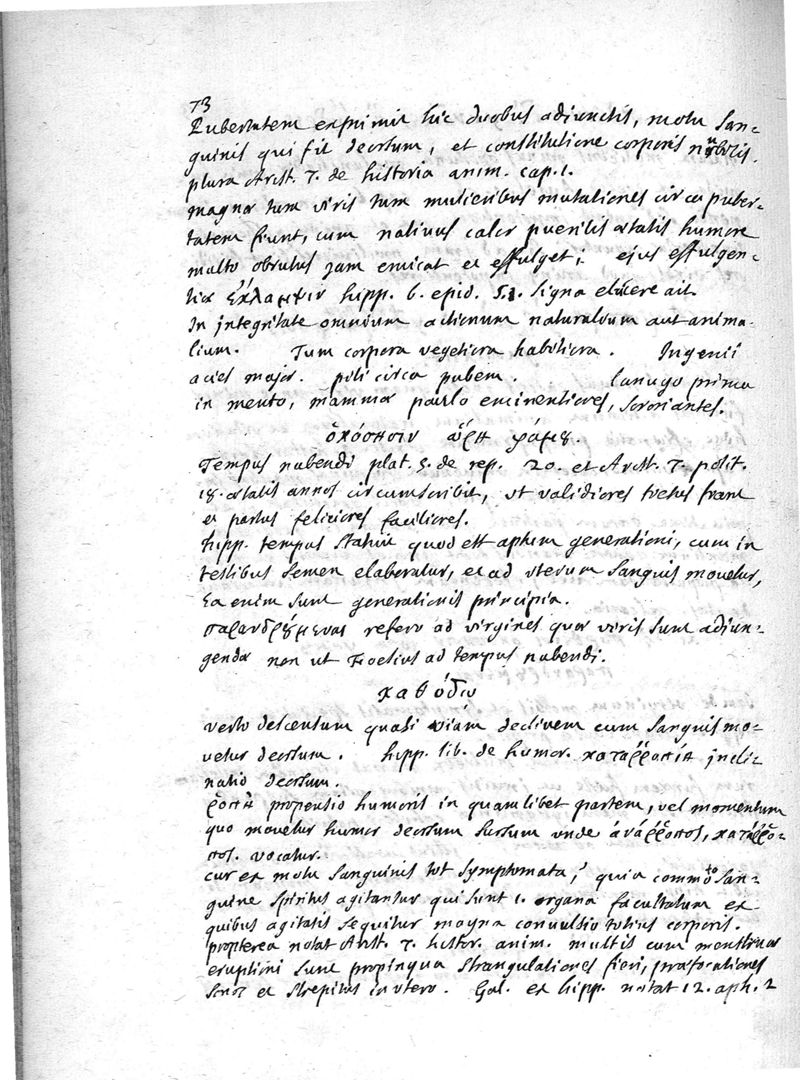 73
Pubertatem exprimit hic duobus adiunctis, motu san=
guinis qui fit deorsum, et constitutione corporis
plura Arist. 7. de historia anim. cap. 1.
magnæ tum viris tum mulieribus mutationes circa puber=
tatem fiunt, cum nativus calor puerilis ætatis humore
multo obrutus jam emicat et effulget; ejus effulgen=
tiæ ἔκλαμψιν hipp. 6. epid. signa elucere ait.
In integritate omnium actionum naturalium aut anima-
lium. Tum corpora vegetiora habitiora. Ingenii
acies major. pili circa pubem. lanugo prima
in mento, mammæ paulo eminentiores, sororiantes.
ὁκόσησιν ὥρη γάμȣ.
Tempus nubendi plat. 5. de rep. 20. et Arist. 7. polit.
18. ætatis annos circumscribit, ut validiores fœtus fiant
et partus feliciores faciliores.
hipp. tempus statuit quod est aptum generationi, cum in
testibus semen elaboratur, et ad uterum sanguis movetur,
Ea enim sunt generationis principia.
παρανδρȣμεναι refero ad virgines quæ viris sunt adiun=
gendæ non ut Foesius ad tempus nubendi.
καθόδȣ
verto descensum quasi viam declivem cum sanguis mo=
vetur deorsum. hipp. lib. de humor. καταῤῥοπίη incli=
natio deorsum.
ῥοπὴ propensio humoris in quamlibet partem, vel momentum
quo movetur humor deorsum sursum unde ἀνάῤῥοπος, κατάῤῥο=
πος. vocatur.
cur ex motu sanguinis tot symptomata; quia commoto san=
guine spiritus agitantur qui sunt 1. organa facultatum ex
quibus agitatis sequitur magna convulsio totius corporis.
propterea notat Arist. 7. histor. anim. multis cum menstruæ
eruptioni sunt propinquæ strangulationes fieri, præfocationes
et strepitus in utero. Gal. ex hipp. notat 12. aph. 2